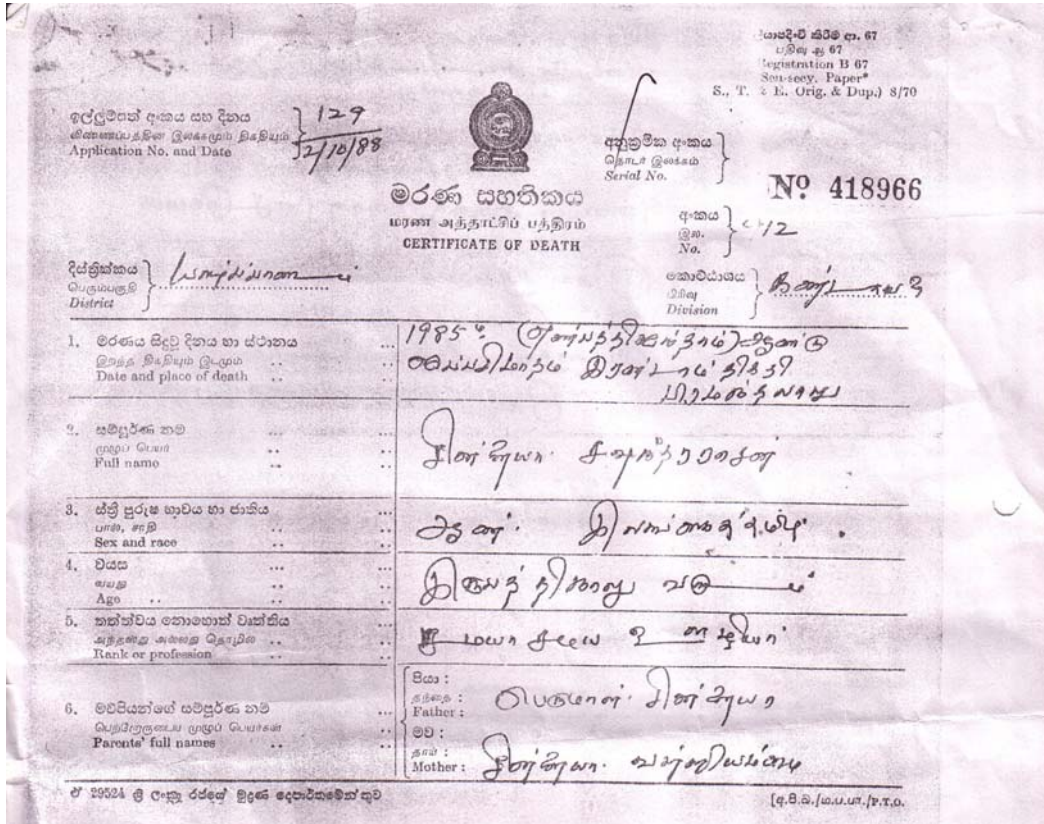 ලියාපදිංචි කිරීම ආ. 67
பதிவு ஆ 67
Registration B 67
Sen-secy. Paper*
S., T. & E. Orig. & Dup.) 8/70
ඉල්ලුම්පත් අංකය සහ දිනය
விண்ணப்பத்தின் இலக்கமும் திகதியும்
Application No. and Date
129
2/10/88
අනුක්‍රමික අංකය
தொடர் இலக்கம்
Serial No.
Nº 418966
මරණ සහතිකය
மரண அத்தாட்சிப் பத்திரம்
CERTIFICATE OF DEATH
අංකය
இல.
No.
දිස්ත්‍රික්කය
பெரும்பகுதி
District
யாழ்ப்பாணம்
කොට්ඨාශය
பிரிவு
Division
1. මරණය සිදුවූ දිනය හා ස්ථානය
இறந்த திகதியும் இடமும்
Date and place of death
1985 ஆண்டு
இரண்டாம் திகதி
2. සම්පූර්ණ නම
முழுப் பெயர்
Full name
சின்னையா
3. ස්ත්‍රී පුරුෂ භාවය හා ජාතිය
பால், சாதி
Sex and race
ஆண். இலங்கைத் தமிழ்.
4. වයස
வயது
Age
இருபத்திநாலு வருடம்
5. තත්ත්වය නොහොත් වෘත්තිය
அந்தஸ்து அல்லது தொழில்
Rank or profession
ஊழியர்
6. මව්පියන්ගේ සම්පූර්ණ නම්
பெற்றோருடைய முழுப் பெயர்கள்
Parents' full names
පියා :
தந்தை :
Father :
பெருமாள். சின்னையா
මව :
தாய் :
Mother :
சின்னையா. வள்ளியம்மை
ඒ 29524 ශ්‍රී ලංකා රජයේ මුද්‍රණ දෙපාර්තමේන්තුව
[අ.පි.බ./ம.ப.பா./P.T.O.